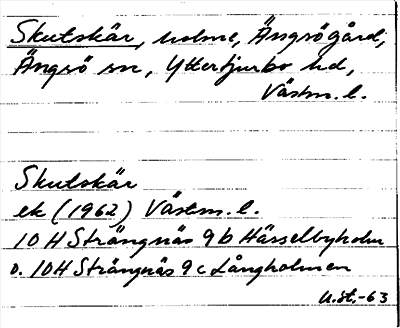 Skutskär, holme, Ängsögård,
Ängsö sn, Yttertjurbo hd,
Västm. l.
Skutskär
ek (1962) Västm. l.
10 H Strängnäs 9 b Hässelbyholm
o. 10H Strängnäs 9 c Långholmen
U.St.-63